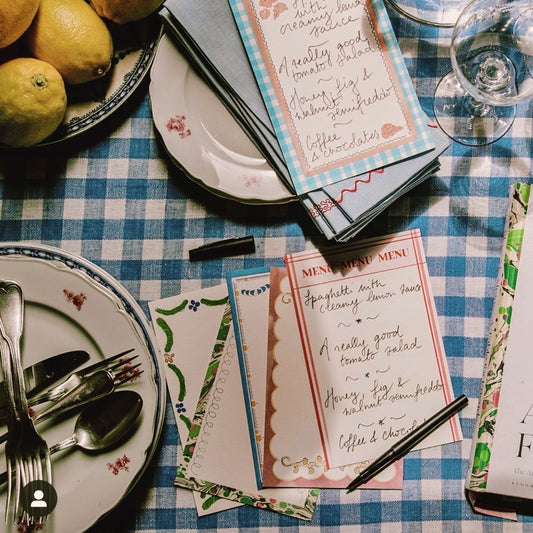 with
creamy lemon
sauce
A really good
tomato salad
Honey, fig &
walnut
semifreddo
Coffee
& chocolates
MENU MENU MENU
Spaghetti with
creamy lemon sauce
A really good
tomato salad
Honey, fig &
walnut semifreddo
Coffee & chocolates
A
F
The